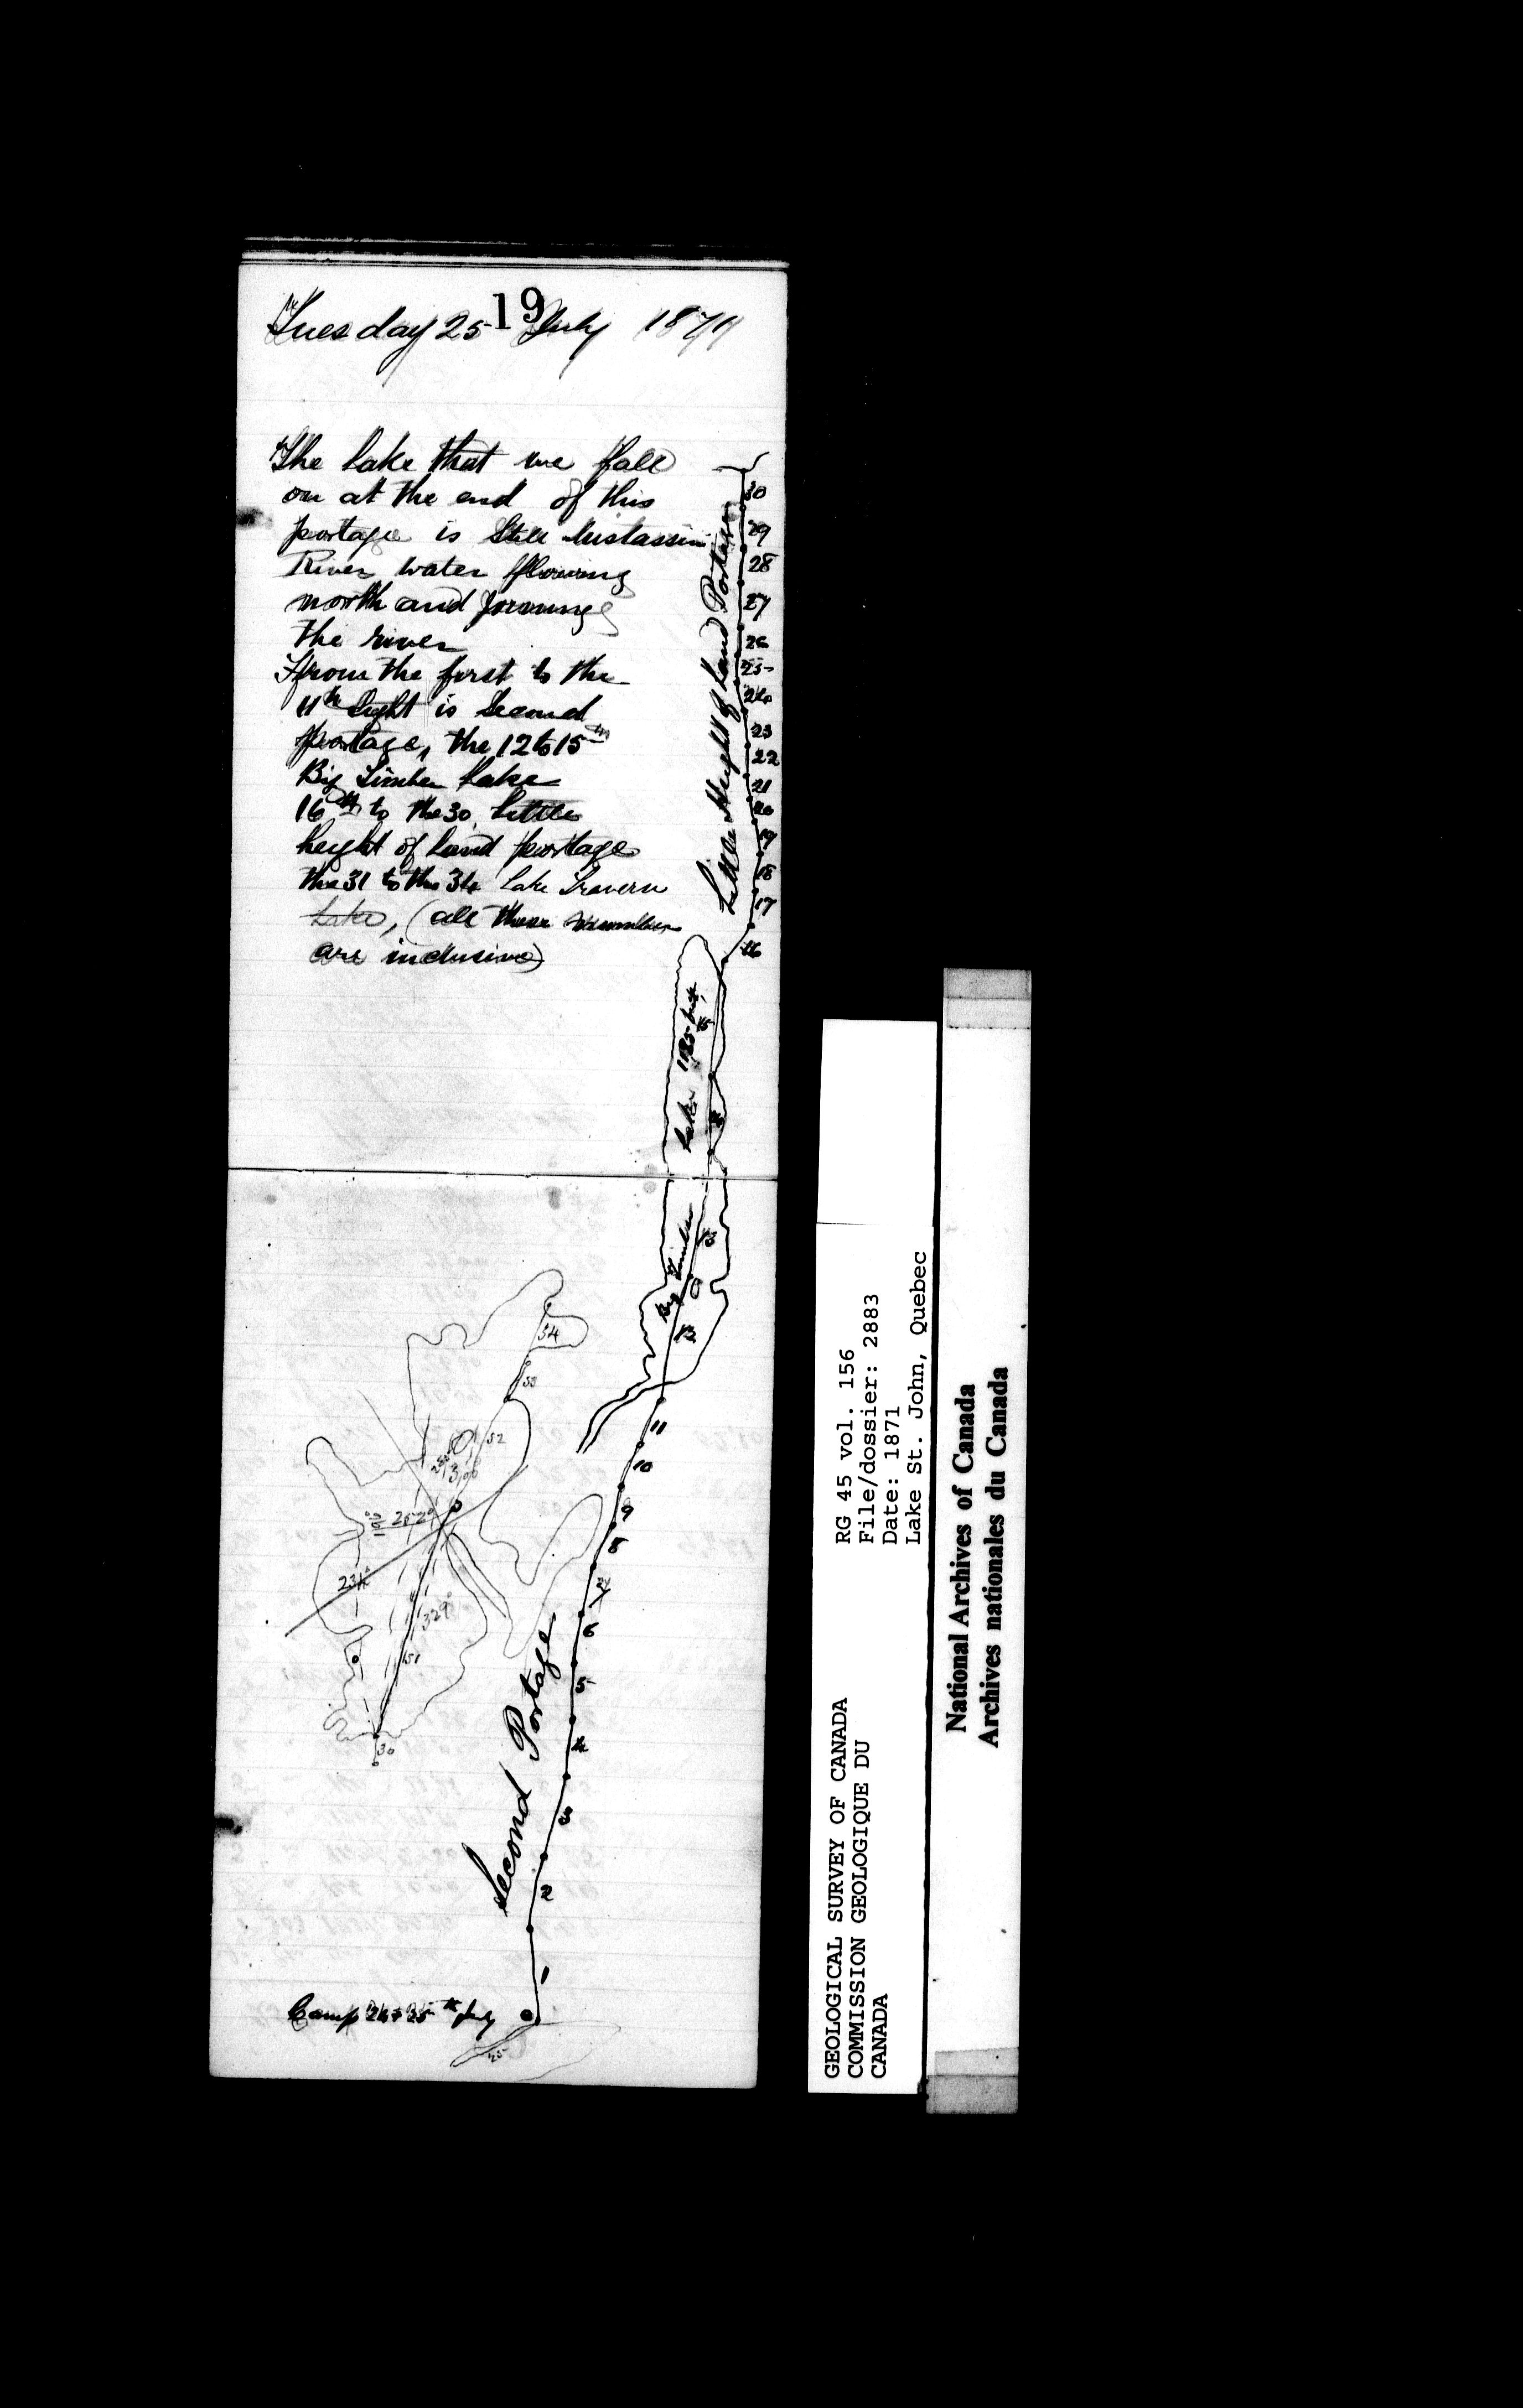 19
Tuesday 25 July 1871
The Lake that we fall
on at the end of this
portage is Still Mistassini
River water flowing
north and forming
the river
From the first to the
11th Sight is Second
portage, the 12 to 15th
Big Timber Lake
16th to the 30 Little
height of land portage
the 31 to the 34 Lake Travern
Lake, (all these numbers
are inclusive)
30
29
28
27
26
25
24
23
22
21
20
19
18
17
16
Little Height of Land Portage
Big Timber Lake
15
13
12
11
10
9
8
7
6
5
4
3
2
1
Second Portage
54
53
52
300
252°
234°
329°
51
30
Camp 24 & 25th July
GEOLOGICAL SURVEY OF CANADA
COMMISSION GEOLOGIQUE DU
CANADA
RG 45 vol. 156
File/dossier: 2883
Date: 1871
Lake St. John, Quebec
National Archives of Canada
Archives nationales du Canada